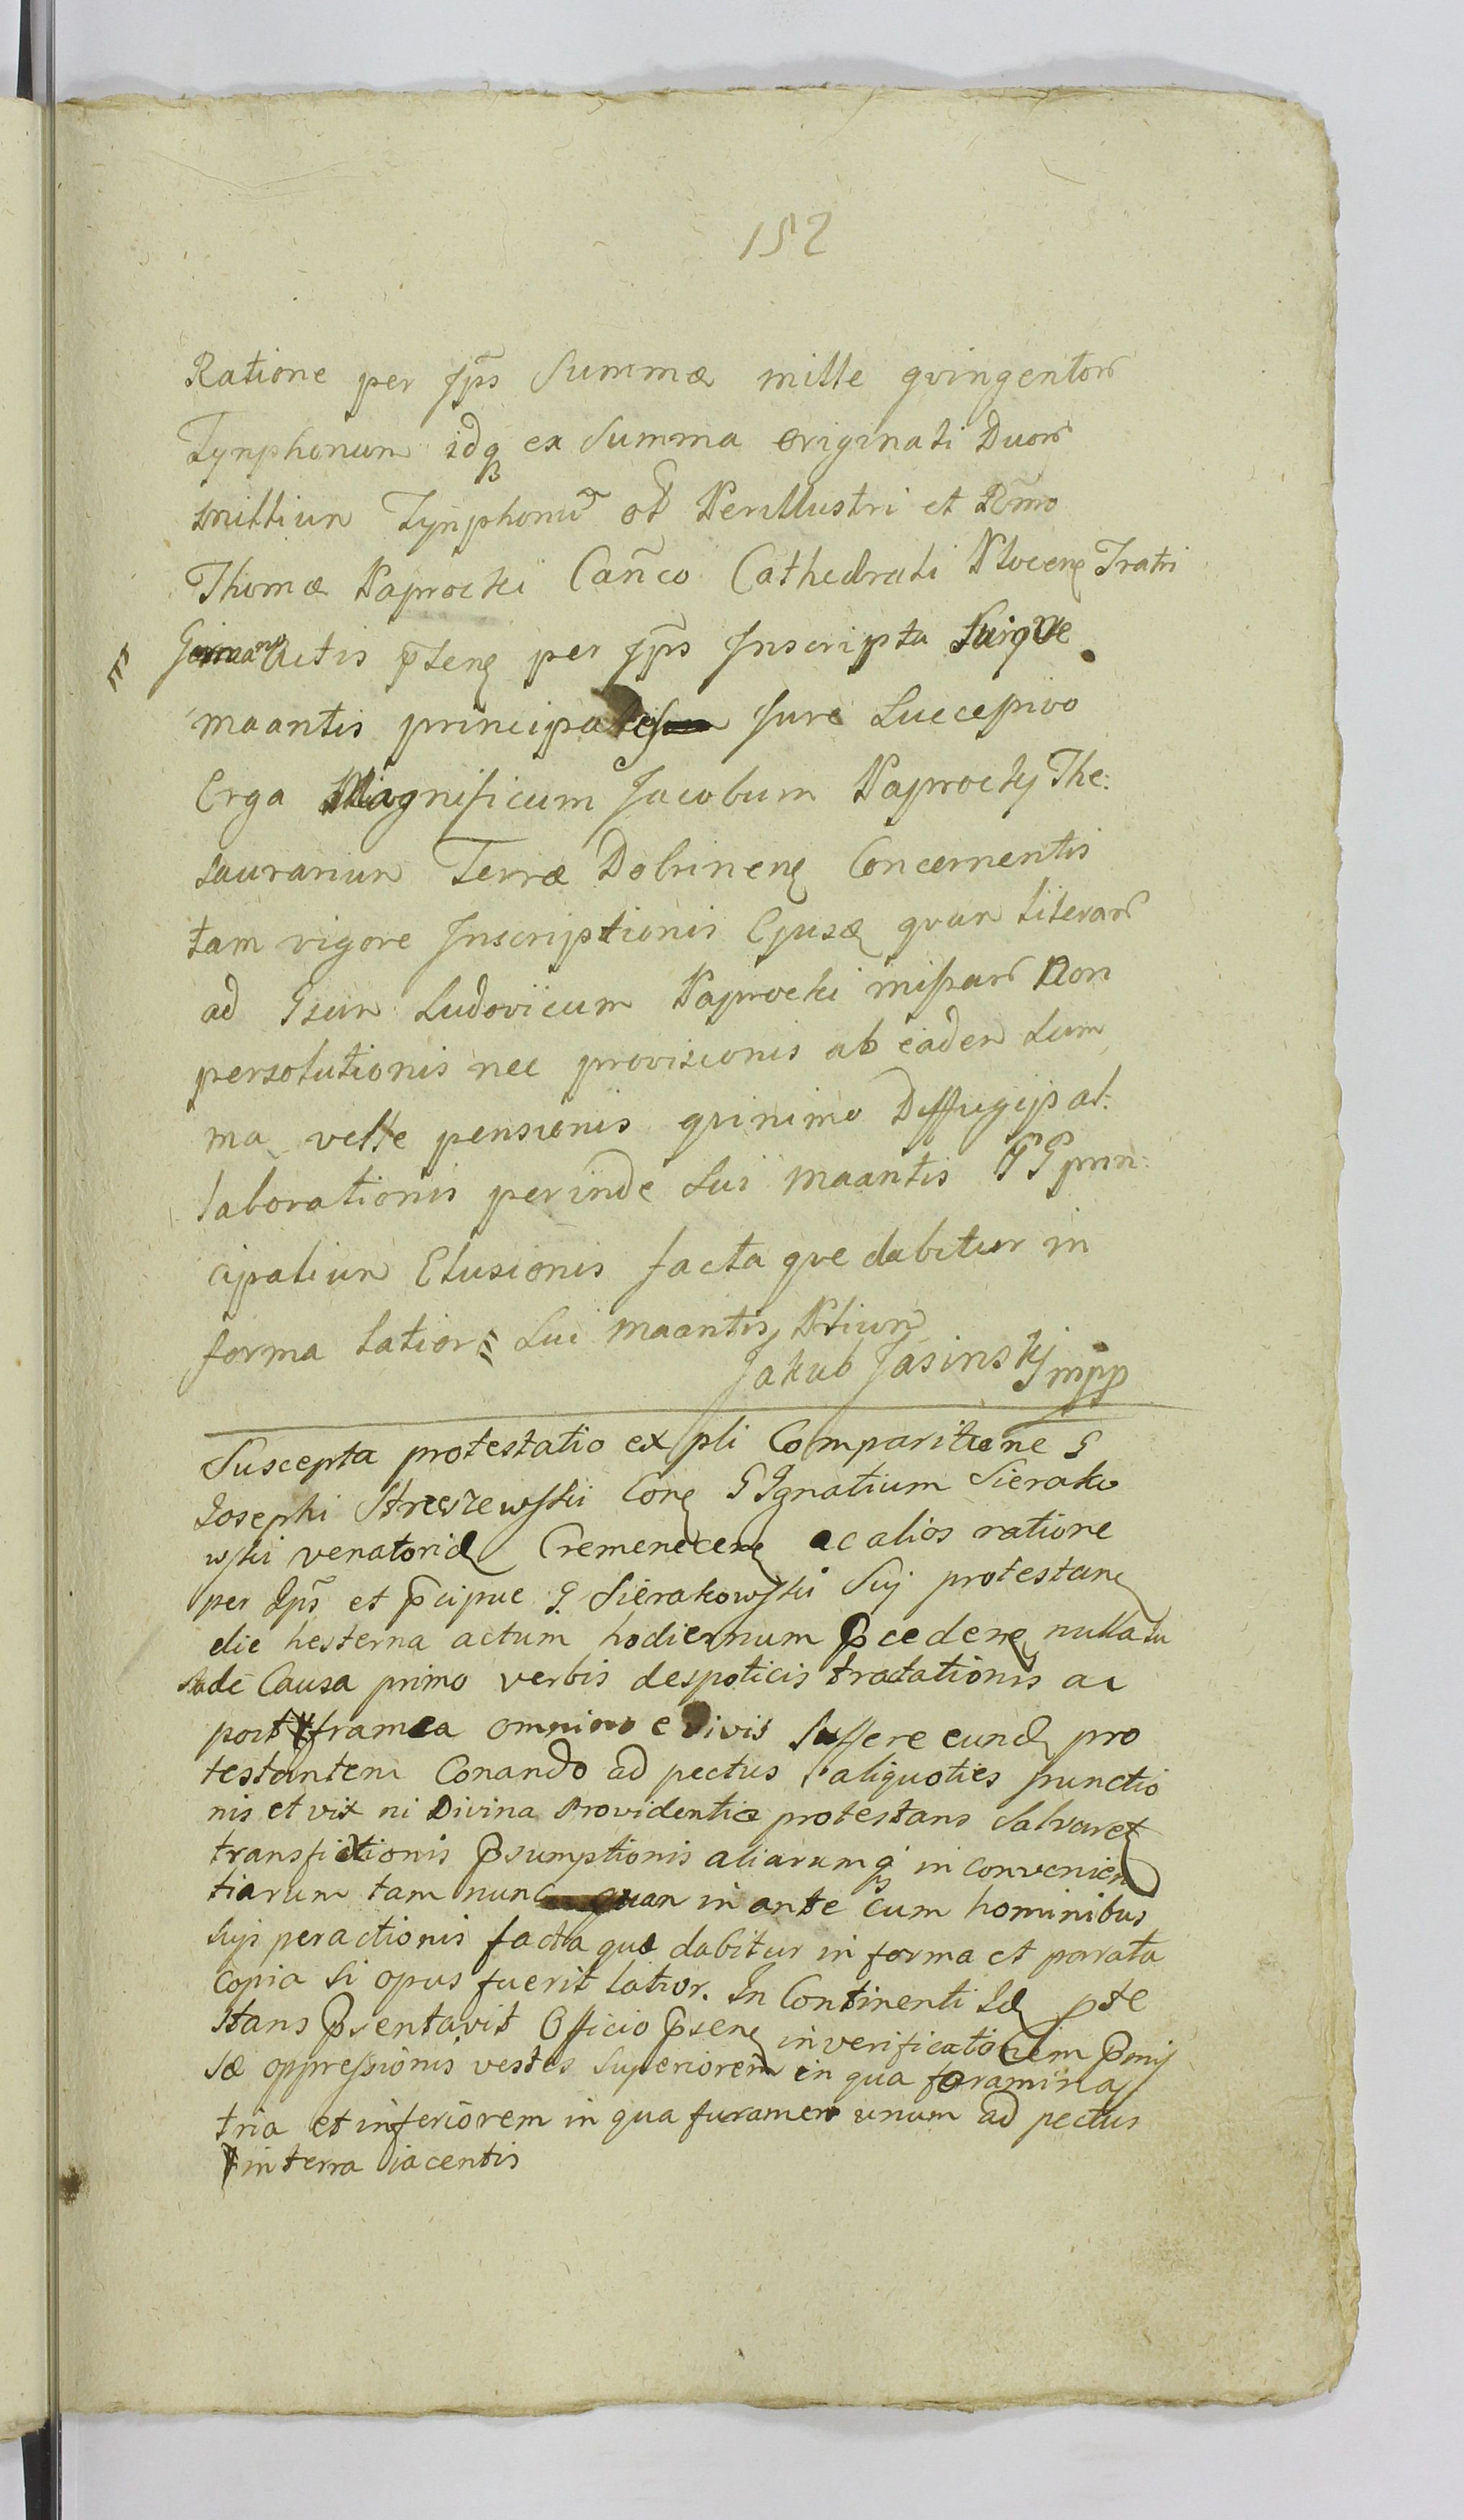 152
Ratione per Jp̃s Summæ mille qvingentor
Tynphonum idq ex Summa originali Duor
millium Tynphonũ ot Perillustri et Rm̃o
Thomæ Paprocki Cañco Cathedrali Plocen Fratri
Germano Actis p̃ten per Jp̃s Inscripta Suiqve
maantis principales Jure Luccepivo
Erga Magnificum Jacobum Paprocky The:
saurarium Terræ Dobrinen Concernentis
tam vigore Inscriptionis Ejusd qvam literar
ad Gsum Ludovicum Paprocki missar Non
persolutionis nec provisionis ab eadem Sum
ma velle pensionis qvinimo Diffugijs al:
laborationis perinde Sui maantis GG prin:
cipalium Elusionis facta qve dabitur in
forma latior Sui maantis Ptium
Jakub Jasinsky mpp
Suscepta protestatio ex pli Comparitione G
Josephi Streszewski Con G Ignatium Sierako
wski venatorid Cremenecen ac alios ratione
per Jp̃s et p̃cipue G. Sierakowski Suj protestan
die hesterna actum hodiernum p̃ceden nulla su
sade Causa primo verbis despoticis tractationis ac
post framea omnino e vivis suffere eund pro
testantem Conando ad pectus aliquoties punctio
nis et vix ni Divina Providentia protestans Salvaret
transfixtionis p̃sumptionis aliarumq in convenien
tiarum tam nunc quam in ante cum hominibus
Sujs peractionis facta quæ dabitur in forma et parata
Copia Si opus fuerit latior. In Continenti Id pte
stans p̃sentavit Officio p̃sen in verificationem p̃mis
sæ oppressionis vestes Superiorem in qua foramina
tria et inferiorem in qua furamen unum ad pectus
in terra iacentis